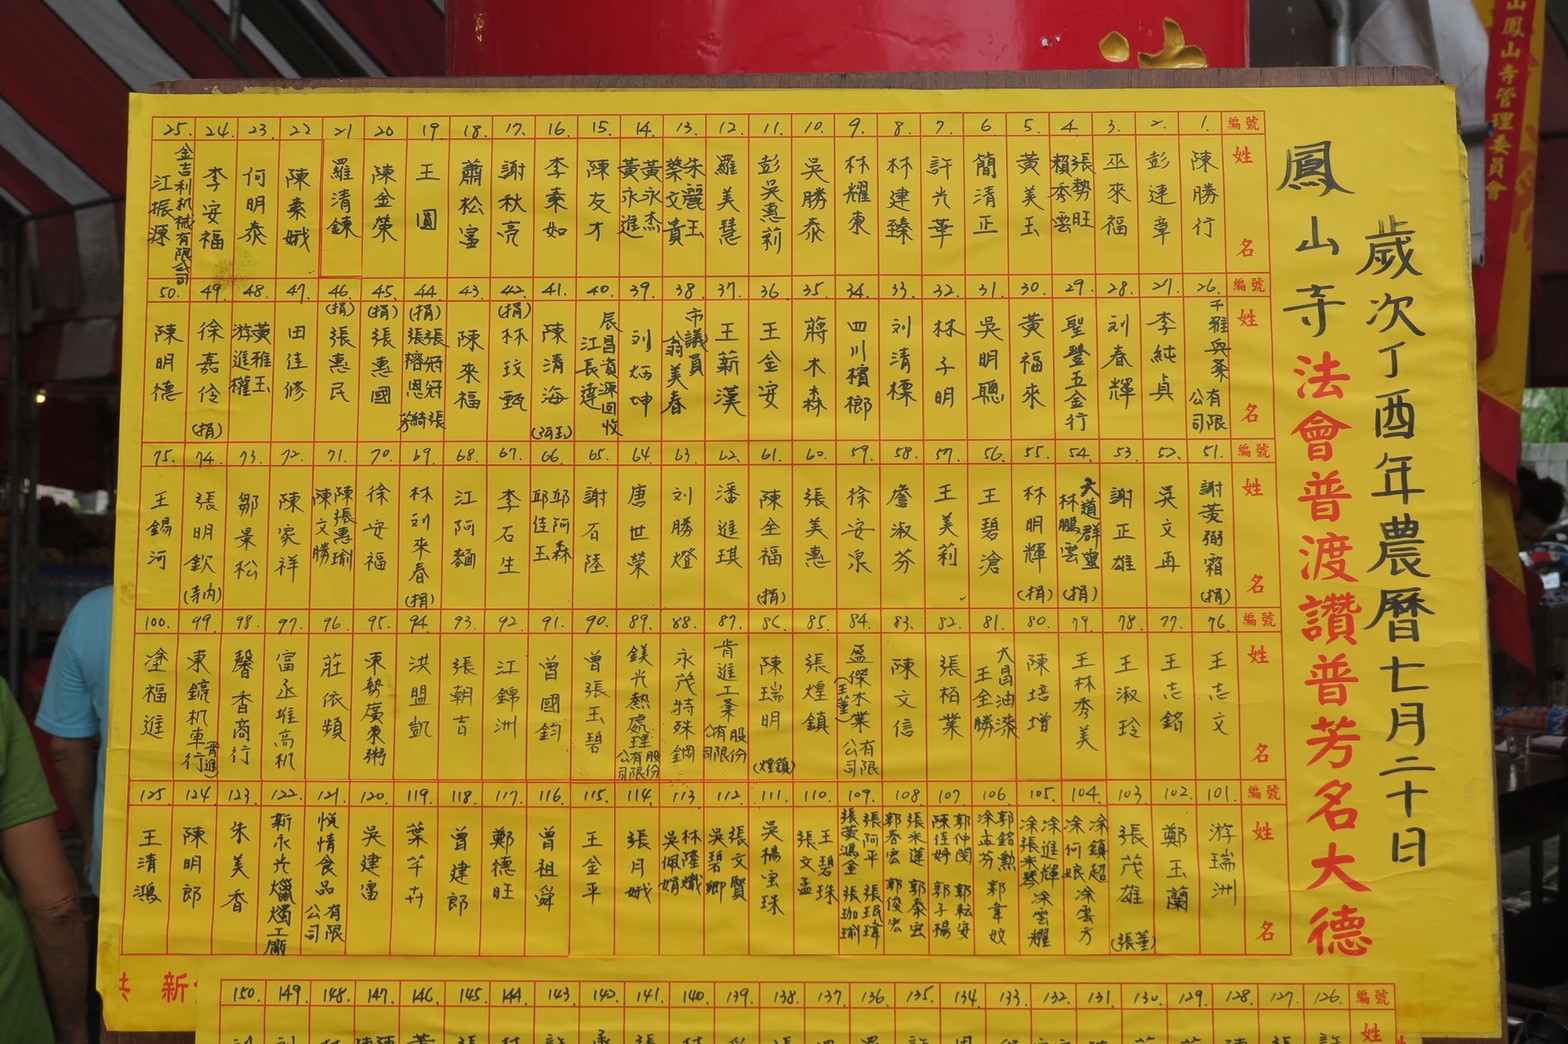 歲次丁酉年農曆七月二十日
鳳山寺法會普渡讚普芳名大德
編號 姓名
1. 陳勝行
2. 彭達章
3. 巫來福
4. 張勢旺 賴秀雲
5. 黃美玉
6. 簡清正
7. 許光華
8. 林建臻
9. 林耀東
10. 吳勝泰
11. 彭吳惠莉
12. 羅美慧
13. 朱麗玉 蔡文貴
14. 黃永杰 黃永進
15. 陳友才
16. 李秉如
17. 謝秋亮
18. 蕭松富
19. 王圓
20. 陳金榮
21. 羅清鍊
22. 陳素娥
23. 何明泰
24. 李安福
25. 金吉利机械有限公司 江振源
編號 姓名
26. 千雅興業有限公司
27. 李純貞
28. 刘春輝
29. 聖豐五金行
30. 黃福來
31. 吳明聰
32. 林子明
33. 刘清標
34. 四川檳榔
35. 蔣木森
36. 王金安
37. 王薪漢
38. 市議員 翁美春
39. 刘炳坤
40. 辰昌資源回收 江長達
41. 陳清海
42. (捐)林玟甄
43. 陳來福
44. (捐)
45. (捐)張惠國
46. (捐)張惠民
47. 田佳修
48. 黃雅玉 游進權
49. 徐嘉伶(捐)
50. 陳明德
編號 姓名
51. 謝菱弼宿(捐)
52. 吳文再
53. 謝正雄
54. 大道群靈 林鵬雲(捐)
55. 林明輝(捐)
56. 王碧滄
57. 王美莉
58. 詹淑芬
59. 徐安泉
60. 張美惠
61. 陳全福(捐)
62. 潘進琪
63. 刘勝燈
64. 唐世榮
65. 謝石陸
66. 邱阿森 邱佳玉
67. 李石生
68. 江阿麵
69. 林刘来春(捐)
70. 徐安福
71. 陳張惠瑜 陳文勝
72. 陳家祥
73. 鄒景松
74. 張明欽(寺內)
75. 王錫河
編號 姓名
76. 王志文
77. 王志銘
78. 王淑玲
79. 王林秀美
80. 陳培增
81. 大昌油漆 王全勝
82. 張柏業
83. 陳文信
84. 盈傑木業有限公司
85. 張煌鎮
86. 陳瑞明(煌鎮)
87. 肯進工業股份有限公司
88. 永茂特殊鋼
89. 鎂光熱處理股份有限公司
90. 曾張玉碧
91. 曾國鈞
92. 江錦洲
93. 張朝吉
94. 洪盟凱
95. 東勢廣東粥
96. 莊依頻
97. 富丞堆高机
98. 馨香商行
99. 東鎮机車行
100. 涂福進
編號 姓名
101. 游瑞洲
102. 鄭玉蘭
103. 張茂雄
104. 涂鎮超 涂何娘 涂雲方
105. 涂進輝 涂張琴 涂雲耀
106. 郭銘勲 涂玉芬 郭韋妏
107. 郭仲茂 陳佳妤 郭崧安 郭子揚
108. 張米達 郭春宏 郭泰宏
109. 張阿平 張黃滿堂 張珉瑋 張珈瑜
110. 王碧珠 張文孟
111. 吳楊宝珠
112. 張文賢 吳碧卿
113. 林陸纖 吳佩娟
114. 張月娥
115. 王金平
116. 曾祖舜
117. 鄭德旺
118. 曾建郎
119. 葉芊卉
120. 吳建富
121. 悅情食品有限公司
122. 新永光爉燭工廠
123. 朱美香
124. 陳明郎
125. 王清鴻
新
編號 126. 127. 128. 129. 130. 131. 132. 133. 134. 135. 136. 137. 138. 139. 140. 141. 142. 143. 144. 145. 146. 147. 148. 149. 150.
姓
山鳳山寺管理委員會